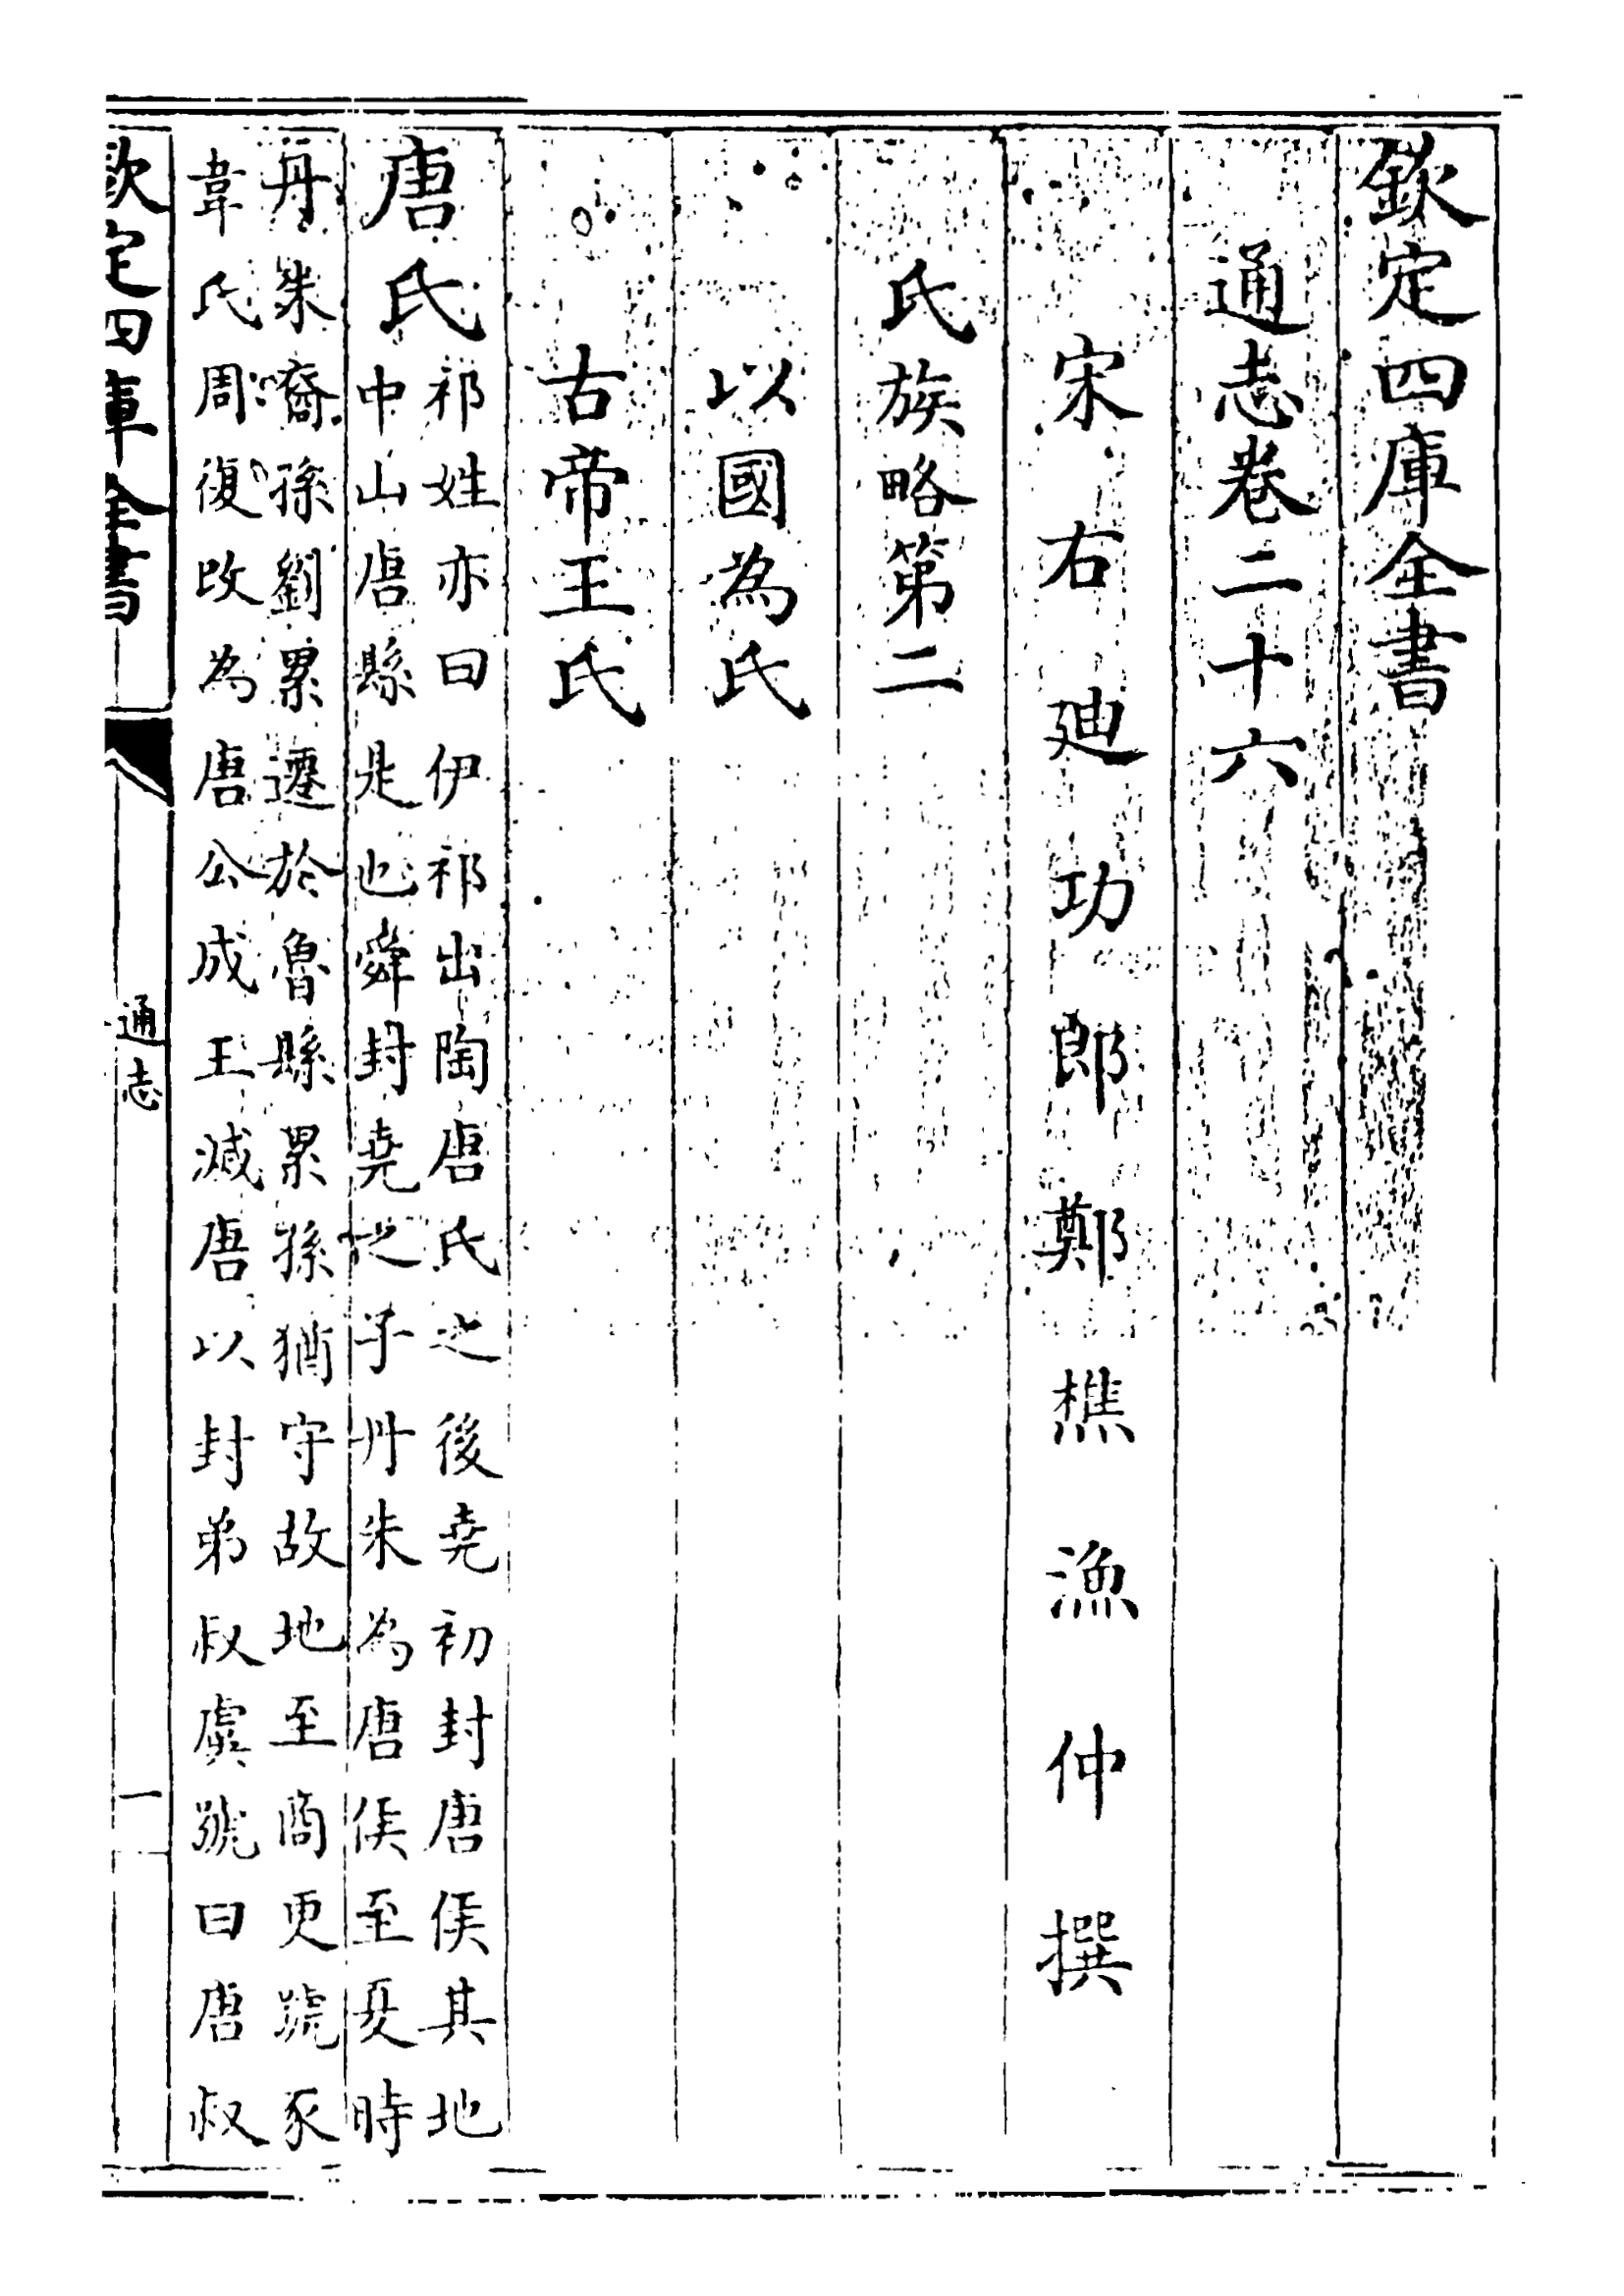 欽定四庫全書
通志卷二十六
宋右廸功郎鄭樵漁仲撰
氏族略第二
以國為氏
古帝王氏
唐氏
祁姓亦曰伊祁出陶唐氏之後堯初封唐侯其地
中山唐縣是也舜封堯之子丹朱為唐侯至夏時
丹朱裔孫劉累遷於魯縣累孫猶守故地至商更號豕
韋氏周復改為唐公成王滅唐以封弟叔虞號曰唐叔
欽定四庫全書
通志
一